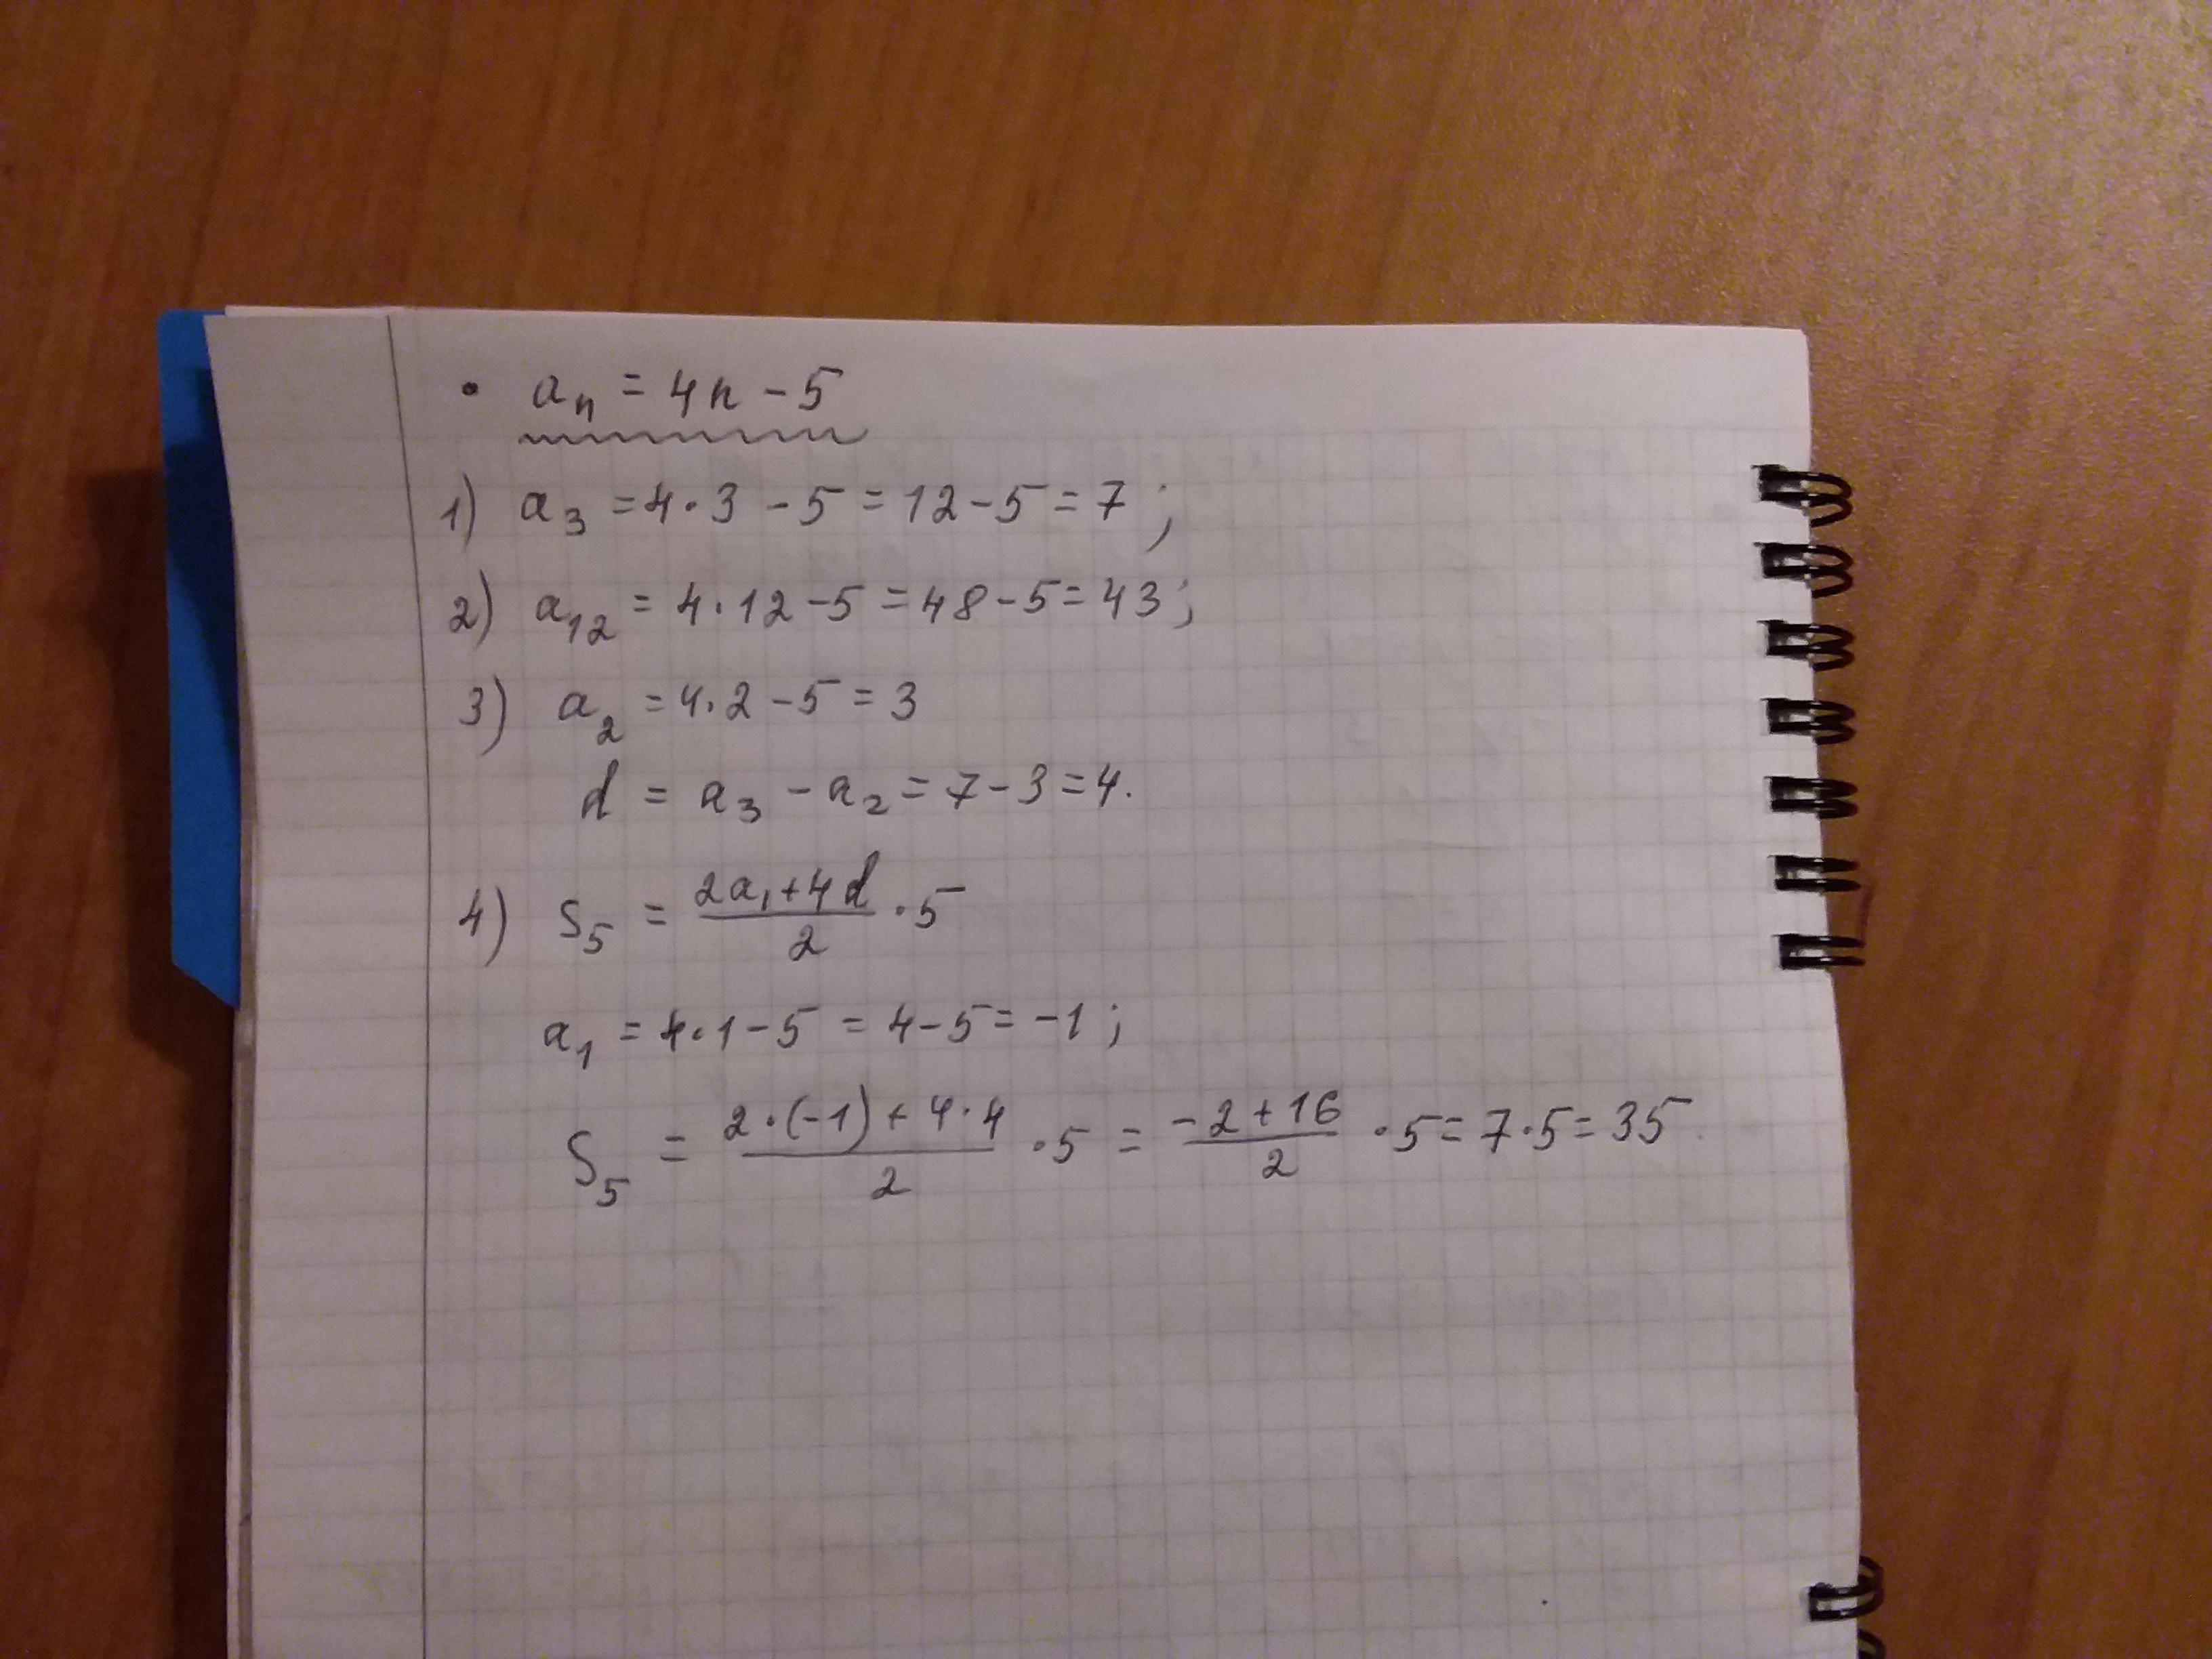 • aₙ = 4n - 5
1) a₃ = 4·3 - 5 = 12 - 5 = 7;
2) a₁₂ = 4·12 - 5 = 48 - 5 = 43;
3) a₂ = 4·2 - 5 = 3
d = a₃ - a₂ = 7 - 3 = 4.
4) S₅ = (2a₁ + 4d)/2 · 5
a₁ = 4·1 - 5 = 4 - 5 = -1;
S₅ = (2·(-1) + 4·4)/2 · 5 = (-2 + 16)/2 · 5 = 7·5 = 35.